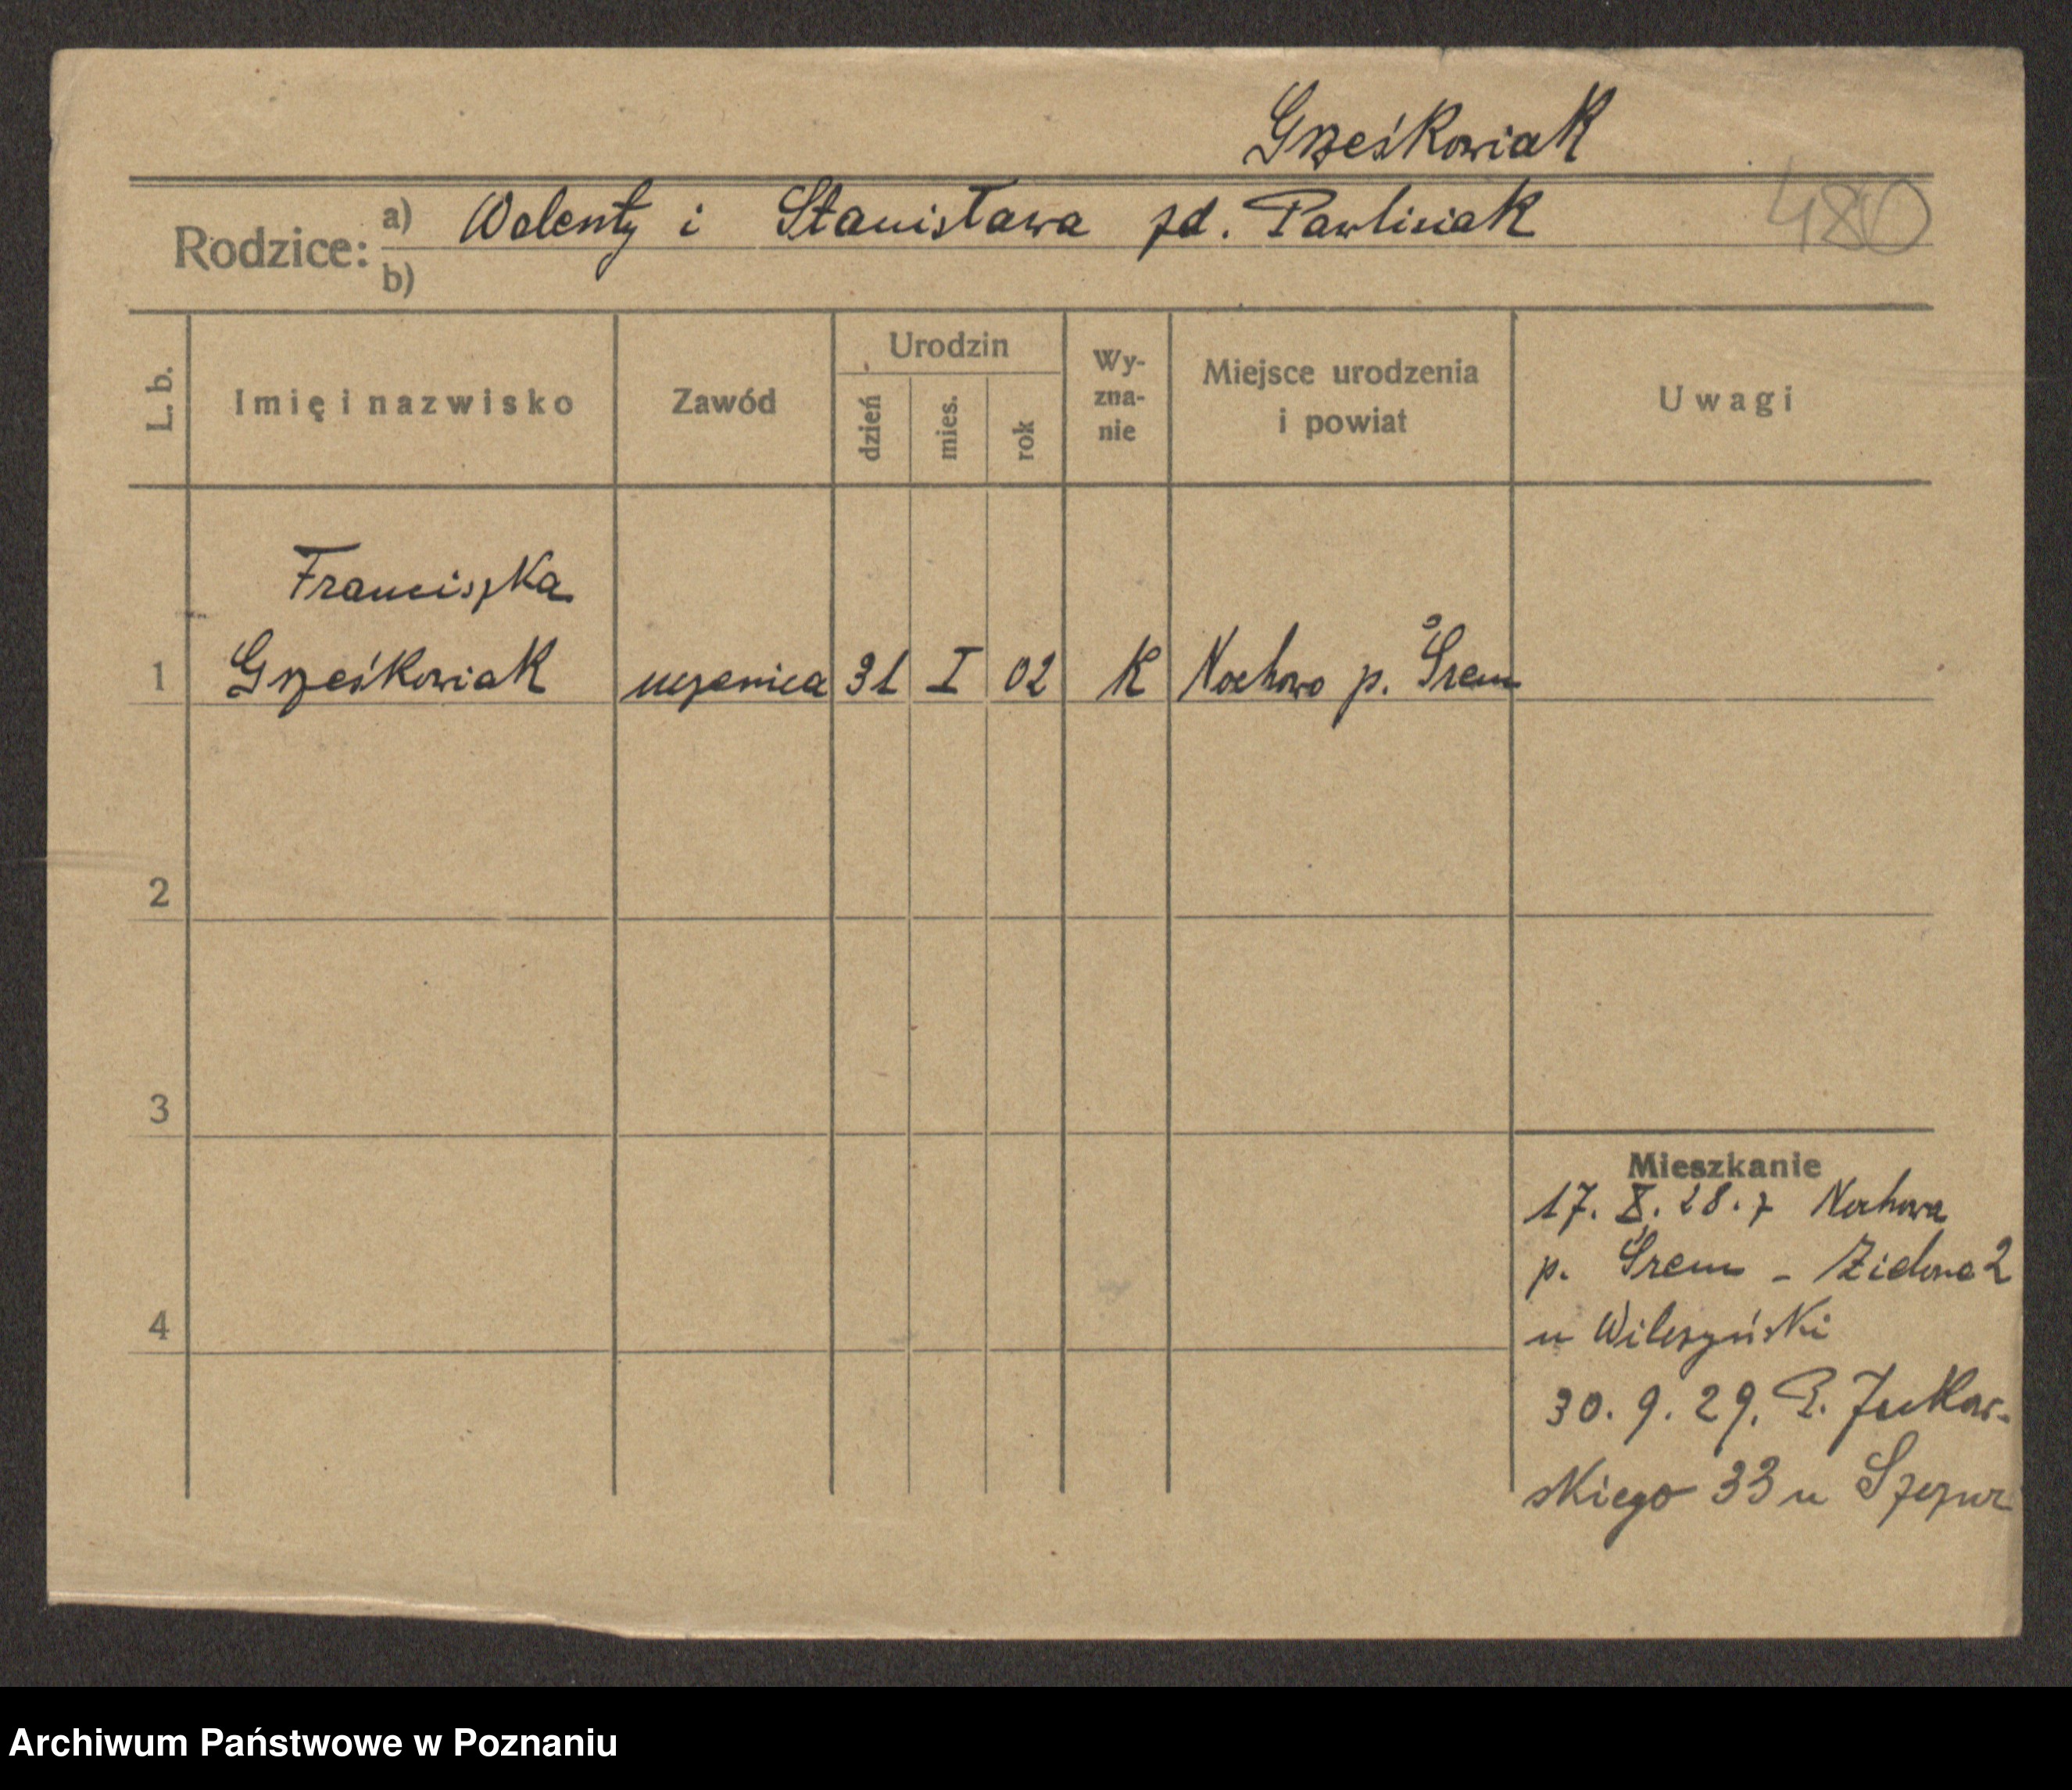 Grześkowiak
Rodzice: a) Walenty i Stanisława zd. Pawlisiak
480
b)
L. b.
Imię i nazwisko
Zawód
Urodzin
dzień
mies.
rok
Wy-
zna-
nie
Miejsce urodzenia
i powiat
Uwagi
Franciszka
1 Grześkowiak uczenica 31 I 02 K Nochowo p. Śrem
2
3
4
Mieszkanie
17. X. 28. z Nochowa
p. Śrem - 2
u
30. 9. 29.
skiego 33 u
Archiwum Państwowe w Poznaniu